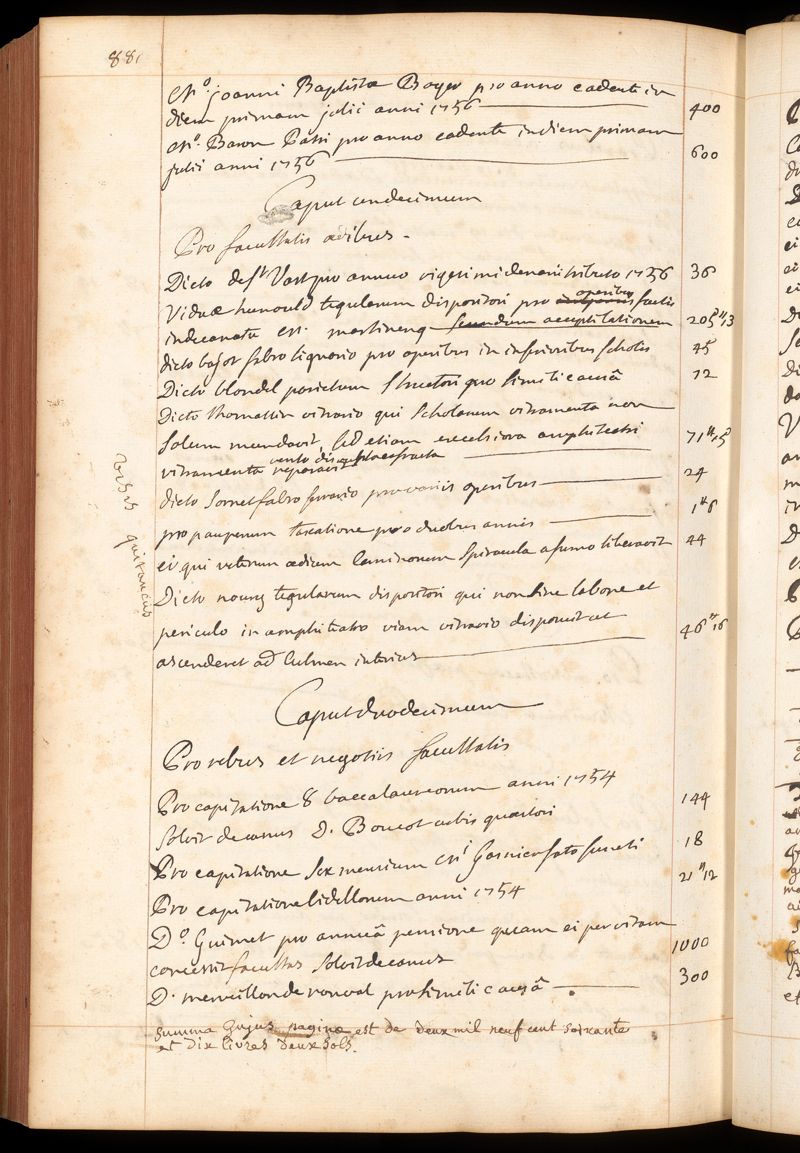 881
Mo. joanni Baptistæ Boyer pro anno cadente in
diem primam julii anni 1756
400
Mo. Baron Patri pro anno cadente in diem primam
julii anni 1756
600
Caput undecimum
Pro facultatis ædibus.
Dicto de St Vast pro annuo vigesimi denarii tributo 1756 36
Viduæ hunould tegularum dispositori pro operibus factis
in decanatu Mi. martinenq secundum acceptilationem 205# 13
dicto bajot fabro lignario pro operibus in inferioribus scholis 45
Dicto blondel parietum structori pro simili causâ 12
Dicto thomassin vitrario qui scholarum vitramenta non
solum mundavit, sed etiam excelsiora amphiteatri
vitramenta reparavit vento disrupta ac fracta
71# 15s
dicto Sornet fabro ferrario pro variis operibus 24
pro pauperum taxatione pro duobus annis 1# 6
ei qui veterum ædium caminorum spiracula a fumo liberavit 44
Dicto noury tegularum dispositori qui non sine labore et
periculo in amphiteatro viam vitrario disposuit ut
ascenderet ad culmen interius
46# 16
visis quitancus
Caput duodecimum
Pro rebus et negotiis facultatis
Pro capitatione 8 baccalaureorum anni 1754
solvit decanus D. Boucot urbis quæstori
144
Pro capitatione sex mensium Mi. Garnier fato functi 18
Pro capitatione bidellorum anni 1754 21# 12
Do. Guimet pro annuâ pensione quam ei per vitam
concessit facultas solvit decanus
1000
D. mervillon de ronval pro simili causâ 300
Summa hujus paginæ est de deux mil neuf cent soixante
et dix livres deux sols.